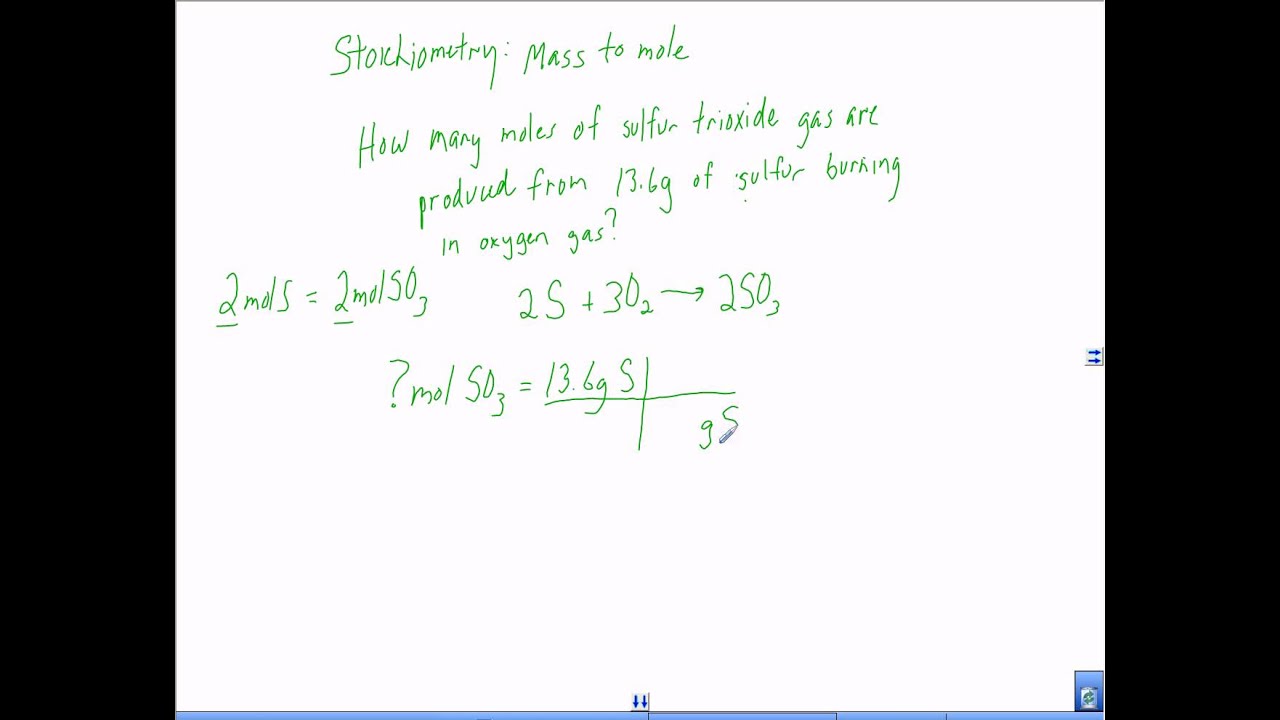 Stoichiometry: Mass to mole
How many moles of sulfur trioxide gas are
produced from 13.6g of sulfur burning
in oxygen gas?
2molS = 2molSO₃ 2S + 3O₂ → 2SO₃
? mol SO₃ = 13.6g S
gS